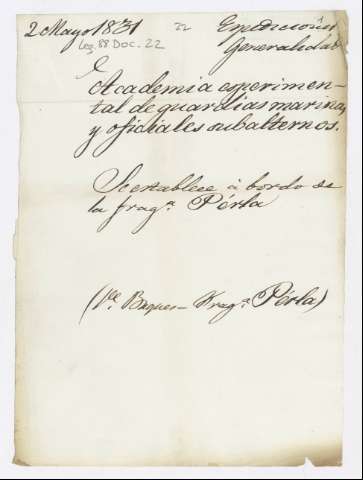 2 Mayo 1831
22
Expediciones
Leg. 88 Doc. 22
Generalidad
Academia esperimen-
tal de guardias marinas,
y oficiales subalternos.
Se establece á bordo de
la frag.ª Pérla
(Vé. Buques - Frag.ª Pérla)